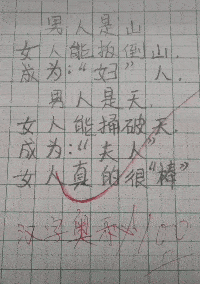 男人是山
女人能扳倒山.
成为:“妇”人.
男人是天.
女人能捅破天.
成为:“夫人”
女人真的很“棒”
汉字奥秘100